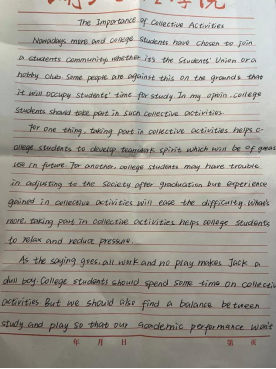 学院
The Importance of Collective Activities
Nowadays more and college students have chosen to join
a students community, whether it's the Students' Union or a
hobby club. Some people are against this on the grounds that
it will occupy students' time for study. In my opoin. college
students should take part in such collective activities.
For one thing, taking part in collective activities helps c-
ollege students to develop teamwork spirit which will be of great
use in future. For another, college students may have trouble
in adjusting to the society after graduation but experience
gained in collective activities will ease the difficulty. What's
more, taking part in collective activities helps college students
to relax and reduce pressure.
As the saying goes, all work and no play makes Jack a
dull boy. College students should spend some time on collective
activities. But we should also find a balance between
study and play so that our academic performance won't
年 月 日 第 页